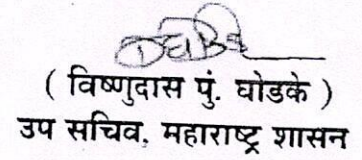 ( विष्णुदास पुं. घोडके )
उप सचिव, महाराष्ट्र शासन